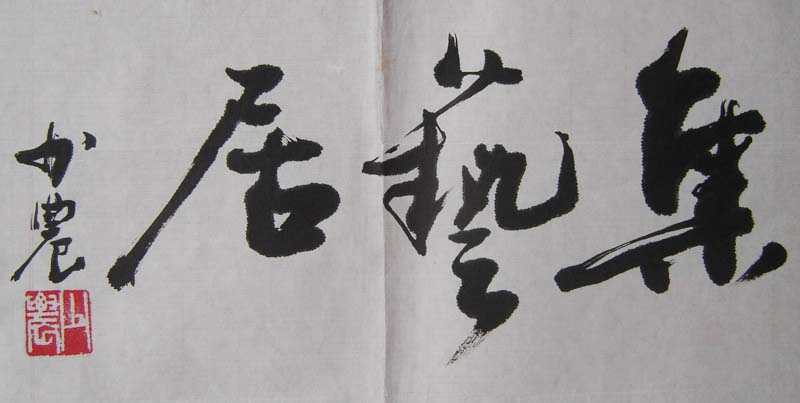 集藝居
農